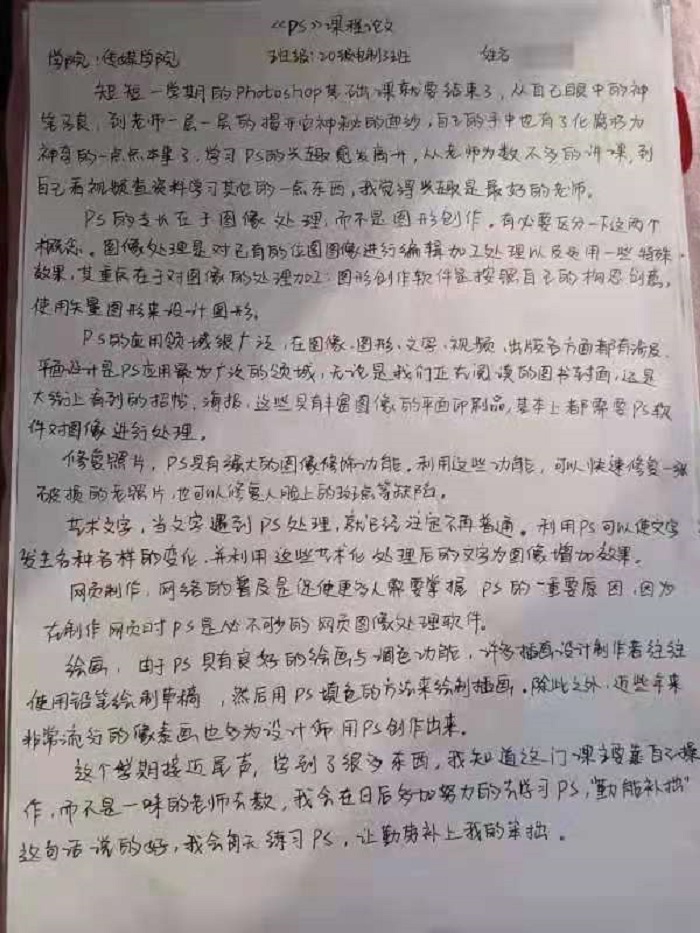 《PS》课程论文
学院：传媒学院 班级：20级电制3班 姓名
短短一学期的Photoshop基础课就要结束了，从自己眼中的神
笔马良，到老师一层一层的揭开它神秘的面纱，自己的手中也有了化腐朽为
神奇的一点点本事了，学习PS的兴趣愈发高升，从老师为数不多的讲课，到
自己看视频查资料学习其它的一点东西，我觉得兴趣是最好的老师。
PS的专长在于图像处理，而不是图形创作。有必要区分一下这两个
概念。图像处理是对已有的位图图像进行编辑加工处理以及运用一些特殊
效果，其重点在于对图像的处理加工；图形创作软件是按照自己的构思创意，
使用矢量图形来设计图形。
PS的应用领域很广泛，在图像、图形、文字、视频、出版各方面都有涉及，
平面设计是PS应用最为广泛的领域，无论是我们正在阅读的图书封面，还是
大街上看到的招帖、海报，这些具有丰富图像的平面印刷品，基本上都需要PS软
件对图像进行处理。
修复照片，PS具有强大的图像修饰功能。利用这些功能，可以快速修复一张
破损的老照片，也可以修复人脸上的斑点等缺陷。
艺术文字，当文字遇到PS处理，就已经注定不再普通。利用PS可以使文字
发生各种各样的变化，并利用这些艺术化处理后的文字为图像增加效果。
网页制作，网络的普及是促使更多人需要掌握PS的一重要原因，因为
在制作网页时PS是必不可少的网页图像处理软件。
绘画，由于PS具有良好的绘画与调色功能，许多插画设计制作者往往
使用铅笔绘制草稿，然后用PS填色的方法来绘制插画。除此之外，近些年来
非常流行的像素画也多为设计师用PS创作出来。
这个学期接近尾声，学到了很多东西，我知道这门课主要靠自己操
作，而不是一味的老师去教，我会在日后多加努力的去学习PS，“勤能补拙”
这句话说的好，我会每天练习PS，让勤劳补上我的笨拙。